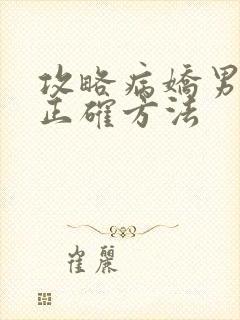 攻略病嬌男
正確方法
崔麗